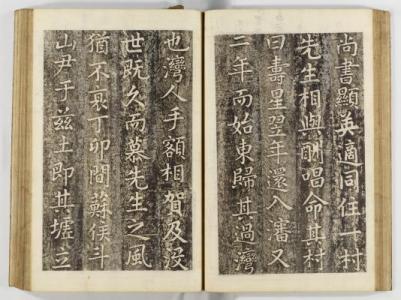 尚書顯英適同住一村
先生相與酬唱命其村
曰壽星翌年還入瀋又
三年而始東歸其過灣
也灣人手額相賀及沒
世既久而慕先生之風
猶不衰丁卯間蘇侯斗
山尹于玆土即其墟立